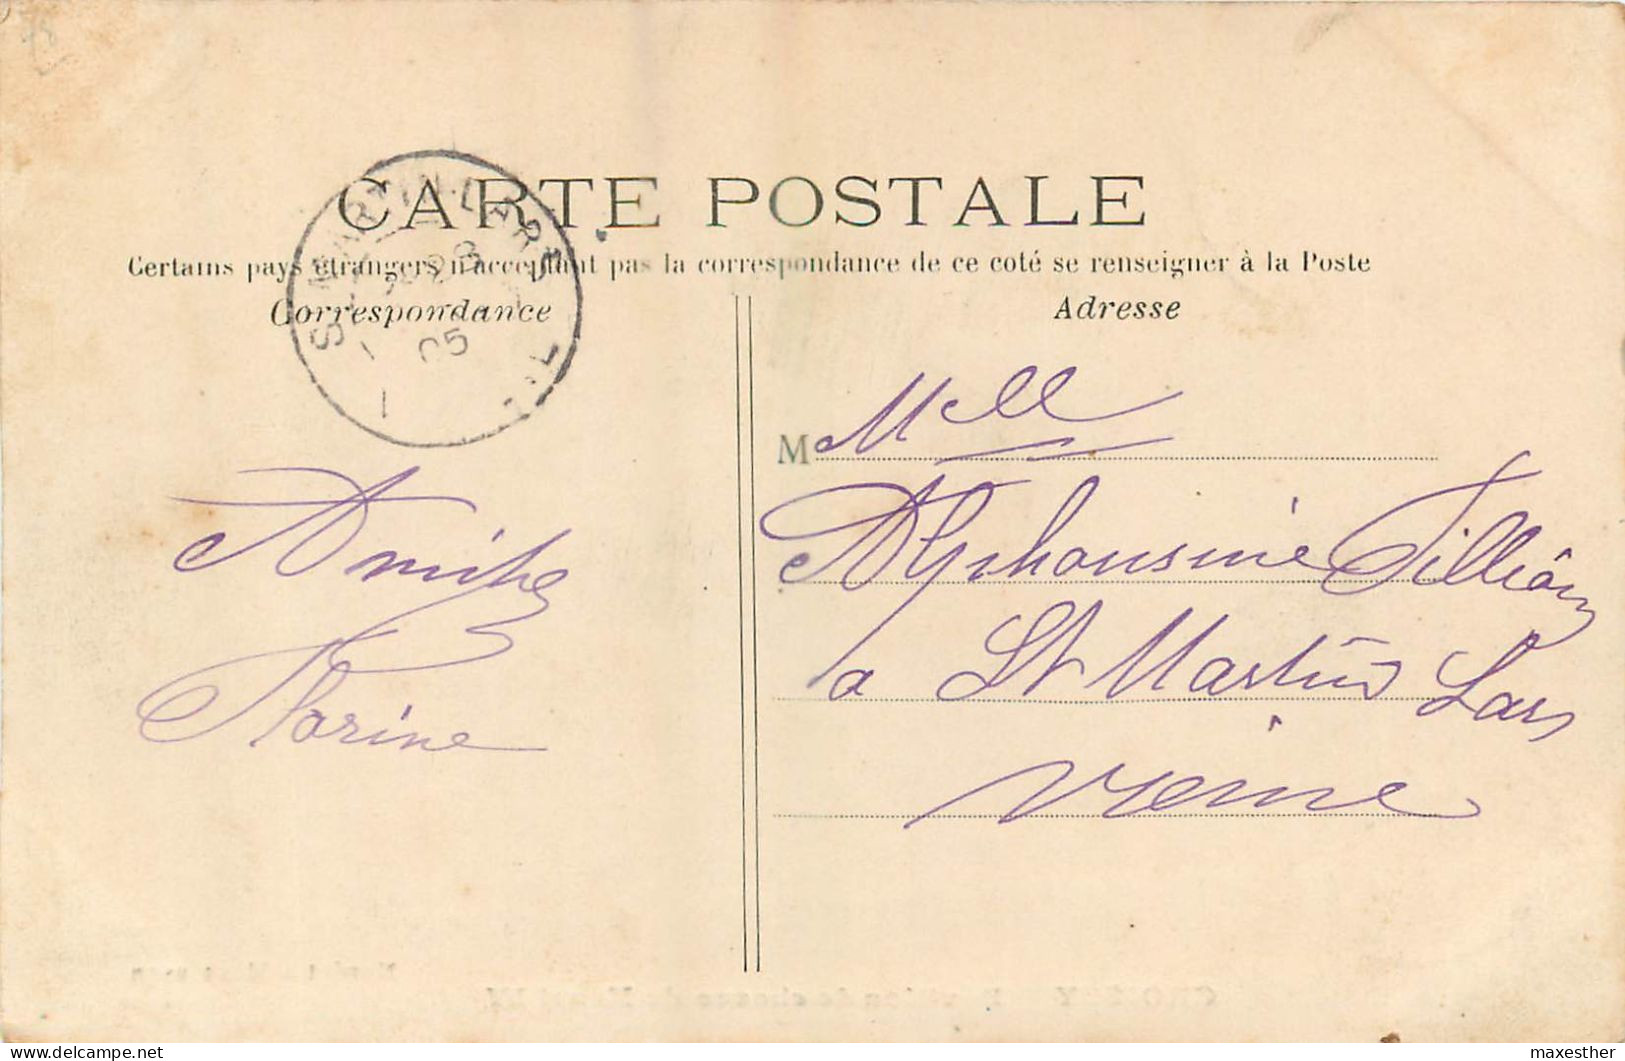 CARTE POSTALE
Certains pays étrangers n'acceptant pas la correspondance de ce coté se renseigner à la Poste
Correspondance
Adresse
05
M Mlle
Alphonsine Tilliôn
a St Martin Lars
Vienne
Amitiés
Florine
maxesther